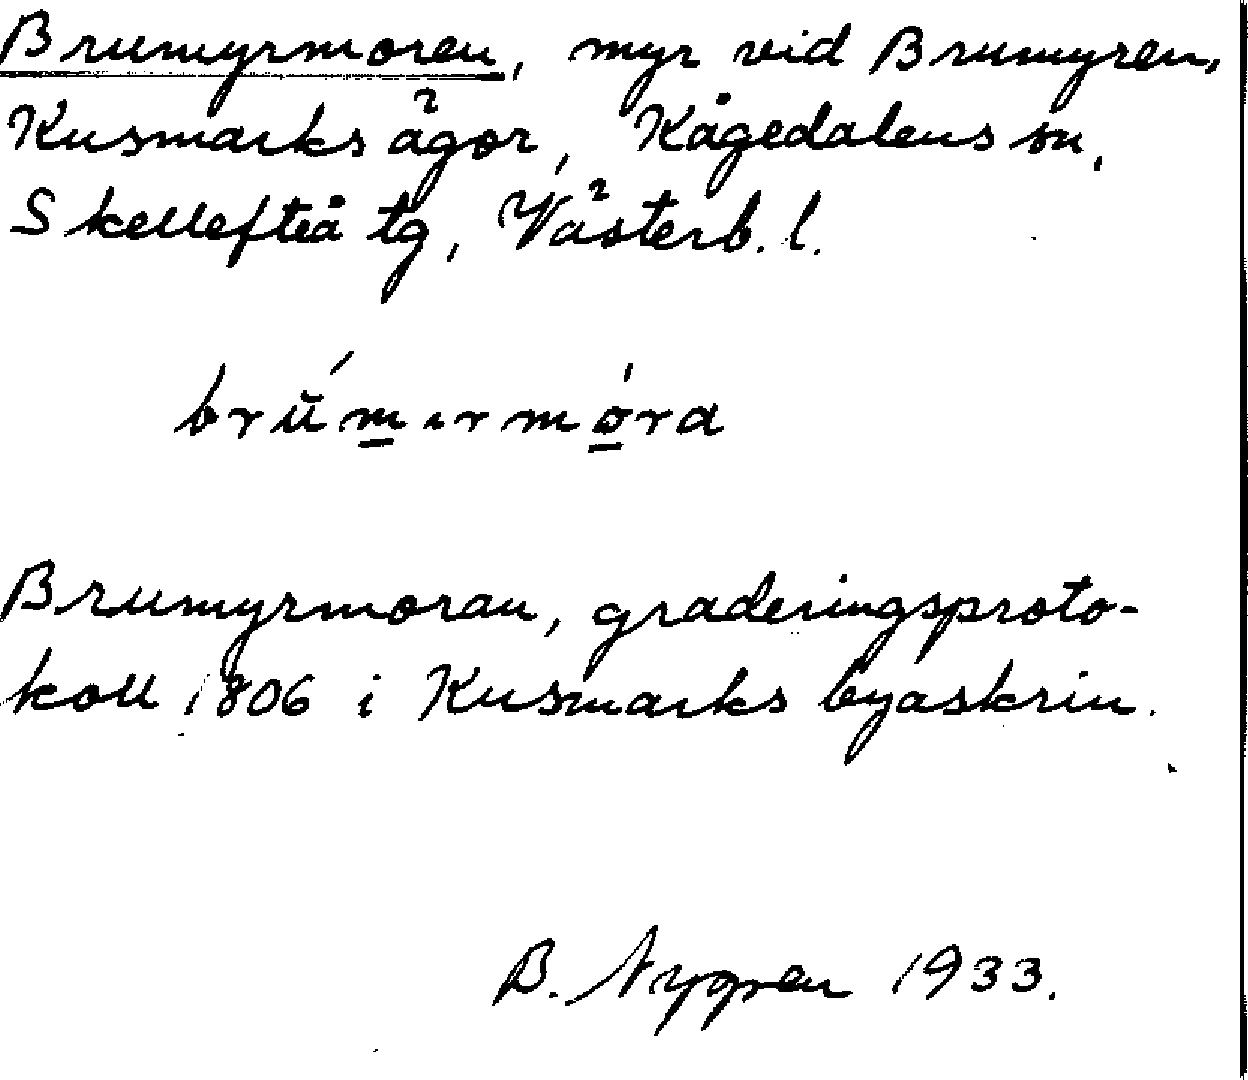 Brumyrmoren, myr vid Brumyren,
Kusmarks ägor, Kågedalens sn,
Skellefteå tg, Västerb. l.
Brumyrmoran, graderingsproto-
koll 1806 i Kusmarks byaskrin.
B. Nygren 1933.